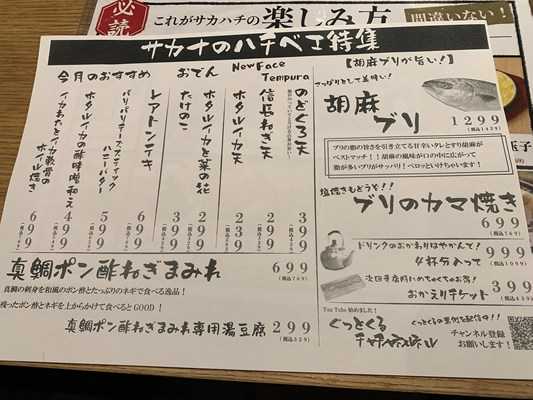 必読
これがサカハチの楽しみ方
間違いない!
サカナのハチベエ特集
今月のおすすめ
イカわたとイカ軟骨のホイル焼き
699
ホタルイカの酢味噌和え
499
パリパリチーズスティック
ハニーバター
599
レアトンテキ
699
おでん
たけのこ
399
ホタルイカと菜の花
299
New Face
Tempura
ホタルイカ天
239
信長ねぎ天
299
のどぐろ天
399
真鯛ポン酢ねぎまみれ
699
真鯛の刺身を和風のポン酢とたっぷりのネギで食べる逸品!
残ったポン酢とネギを上からかけて食べるとGOOD!
真鯛ポン酢ねぎまみれ専用湯豆腐 299
(税込329)
【胡麻ブリが旨い!】
さっぱりとして美味い!
胡麻ブリ
1299
(税込1429)
ブリの脂の旨みを引き立てる甘辛いタレとすり胡麻が
ベストマッチ!!胡麻の風味が口の中に広がって
脂が多いブリがサッパリ!ペロッといけちゃいます!
塩焼きもどうぞ!!
ブリのカマ焼き
699
(税込769)
ドリンクのおかわりはやかんで!
4杯分入って
999
(税込1099)
次回来店時にめちゃくちゃお得!
おかえりチケット
399
(税込439)
You Tube 始めました!
ぐっとくる
ぐっとくるの裏側を配信中!!
チャンネル登録
お願いします!